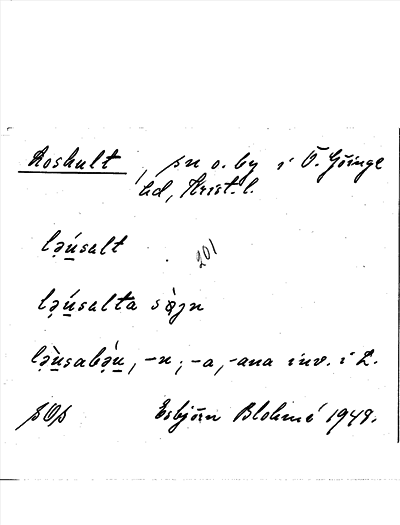 Loshult, sn o. by i Ö. Göinge
hd, Krist. l.
lǝúsalt
201
lǝúsalta sògn
lǝùsabǝ̀u, -n, -a, -ana inv. i L.
SOS Esbjörn Blohmé 1948.